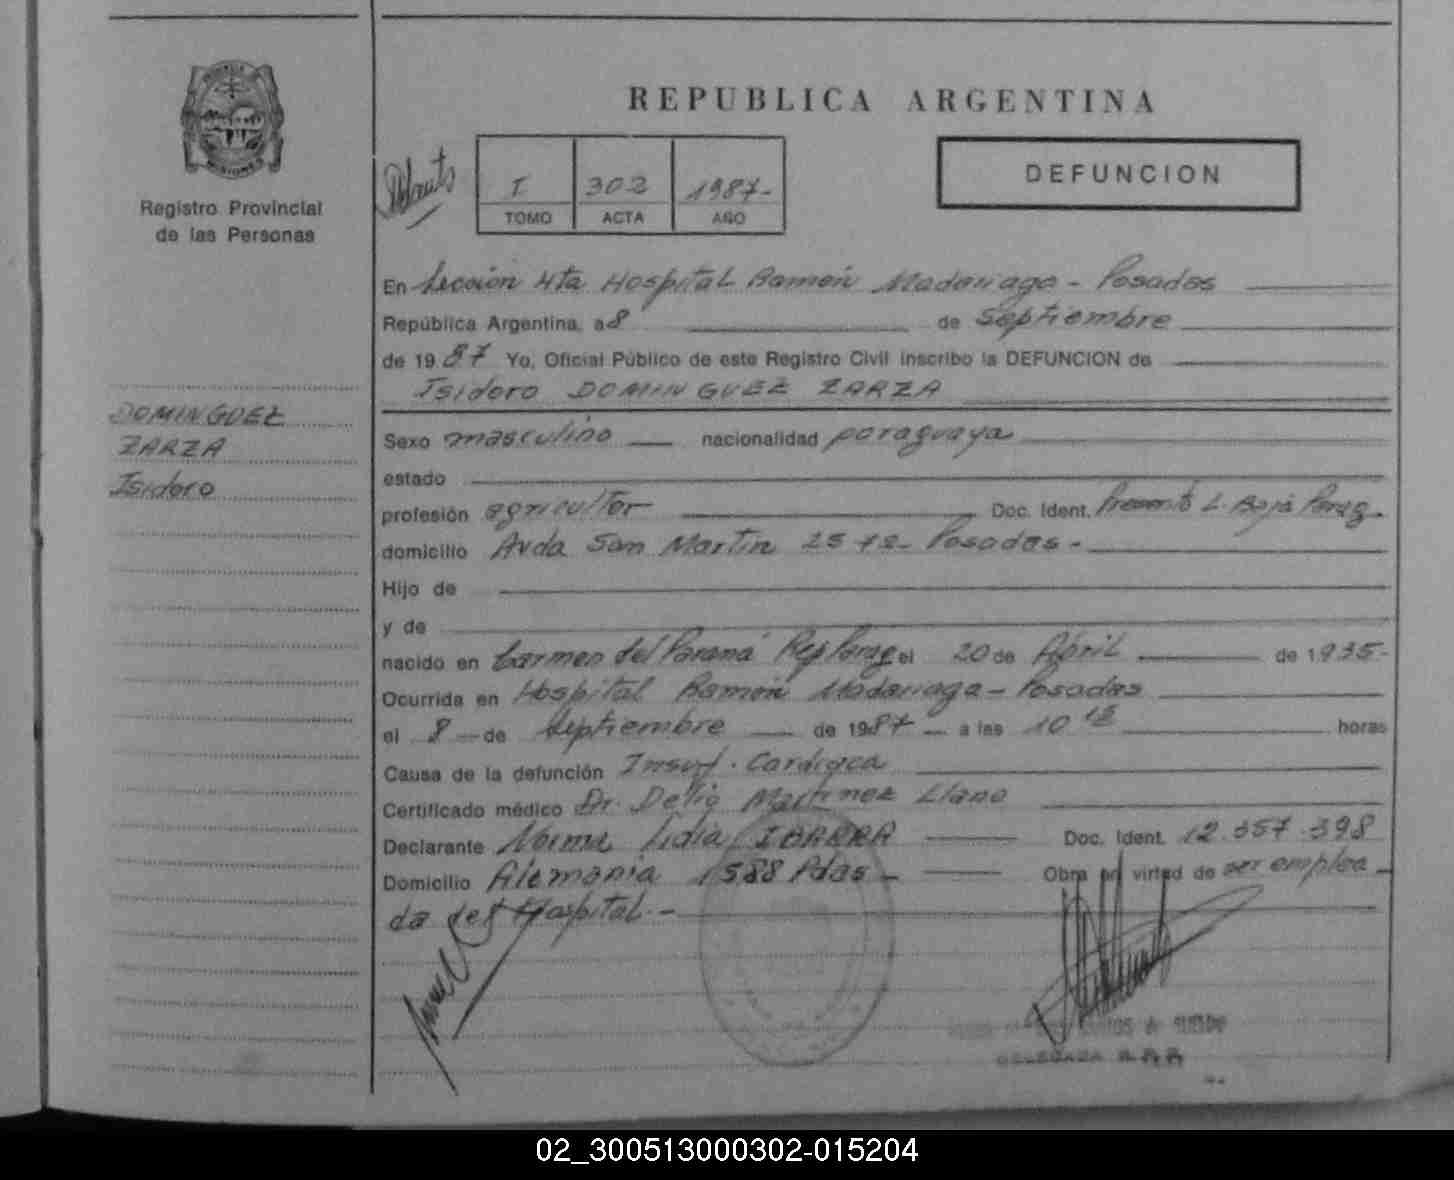 REPUBLICA ARGENTINA
DEFUNCION
PROVINCIA
MISIONES
Registro Provincial
de las Personas
I 302 1987-
TOMO ACTA AÑO
En Sección 4ta Hospital Ramón Madariaga - Posadas
República Argentina, a 8 de Septiembre
de 1987 Yo, Oficial Público de este Registro Civil inscribo la DEFUNCION de
Isidoro DOMINGUEZ ZARZA
DOMINGUEZ
ZARZA
Isidoro
Sexo masculino nacionalidad paraguaya
estado
profesión agricultor Doc. Ident. Presentó L. Baja Parag.
domicilio Avda San Martín 2572- Posadas-
Hijo de
y de
nacido en Carmen del Paraná Rep Parag el 20 de Abril de 1935-
Ocurrida en Hospital Ramón Madariaga - Posadas
el 8 de Septiembre de 1987 a las 10 15 horas
Causa de la defunción Insuf. Cardiaca
Certificado médico Dr. Delio Martinez Llano
Declarante Norma Lidia IBARRA Doc. Ident. 12.357.398
Domicilio Alemania 1588 Pdas- Obra en virtud de ser emplea
da del Hospital.-
DELEGADA
02_300513000302-015204